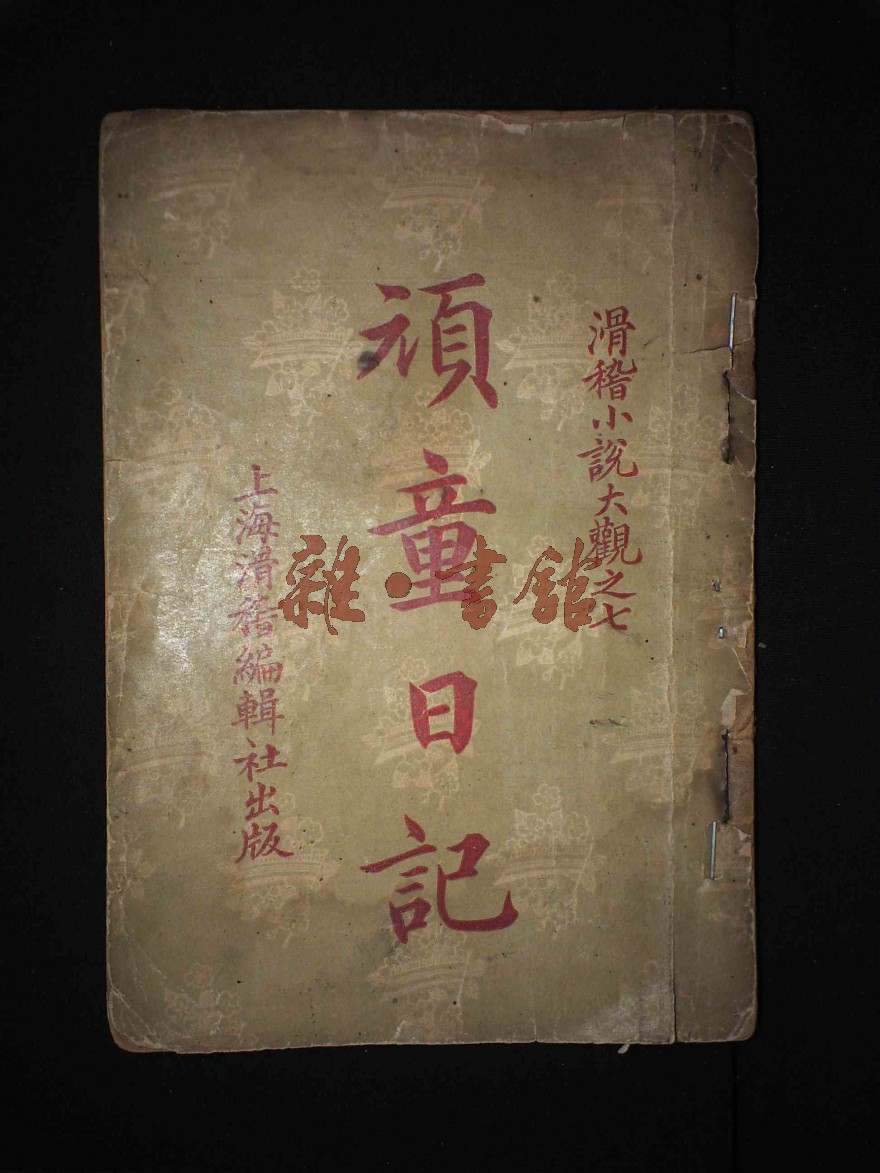 滑稽小說大觀之七
頑童日記
上海滑稽編輯社出版
雜·書館